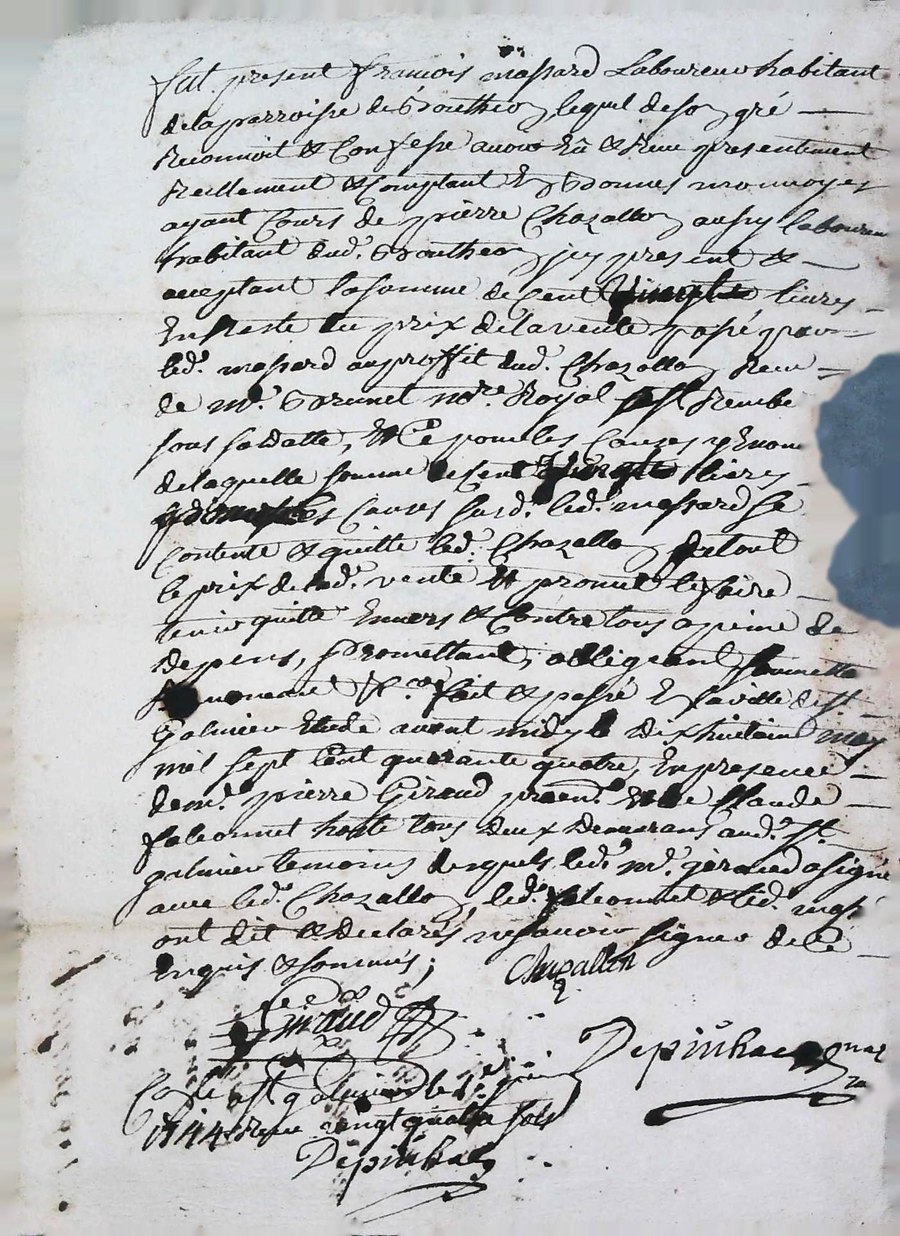 fut present françois massard Laboureur habitant
de la parroisse de Bouthéon lequel de son gré
Reconnoit & Confesse avoir Eû & Receu presentement
Reellement & Comptant En Bonnes monnoyes
ayant Cours de pierre Chazallon aussy laboureur
habitant dud. Bouthéon, icy present &
acceptant la somme de Cent livres
En Reste du prix de la vente passé par
led. massard au proffit dud. Chazallon Receu
de Me. Brunet nore. Royal
sous sa datte, Et Ce pour les Causes y Enon
de laquelle somme de Cent livres
Causes susd. led. massard Se
Contente & quitte led. Chazallon de tout
le prix de lad. vente Et promet le faire
tenir quitte Envers & Contre tous a peine de
depens, promettant, obligeant, soumettant
Renoncant &c. fait & passé En la ville de St.
Galmier Etude avant midy le dix huitieme may
mil sept Cent quarante quatre, En presence
de me. pierre Giraud Et de Claude
falconnet hoste tous deux demeurans aud. St.
galmier temoins desquels led. me. giraud a signé
avec led. Chazallon, led. falconnet & led. mass
ont dit & declarés ne sçavoir signer de Ce
Enquis & sommés;
Chazallon
Giraud
Depinhac
Con.lé a St. galmier le
1744 Receu vingt quatre sols
Depinhac